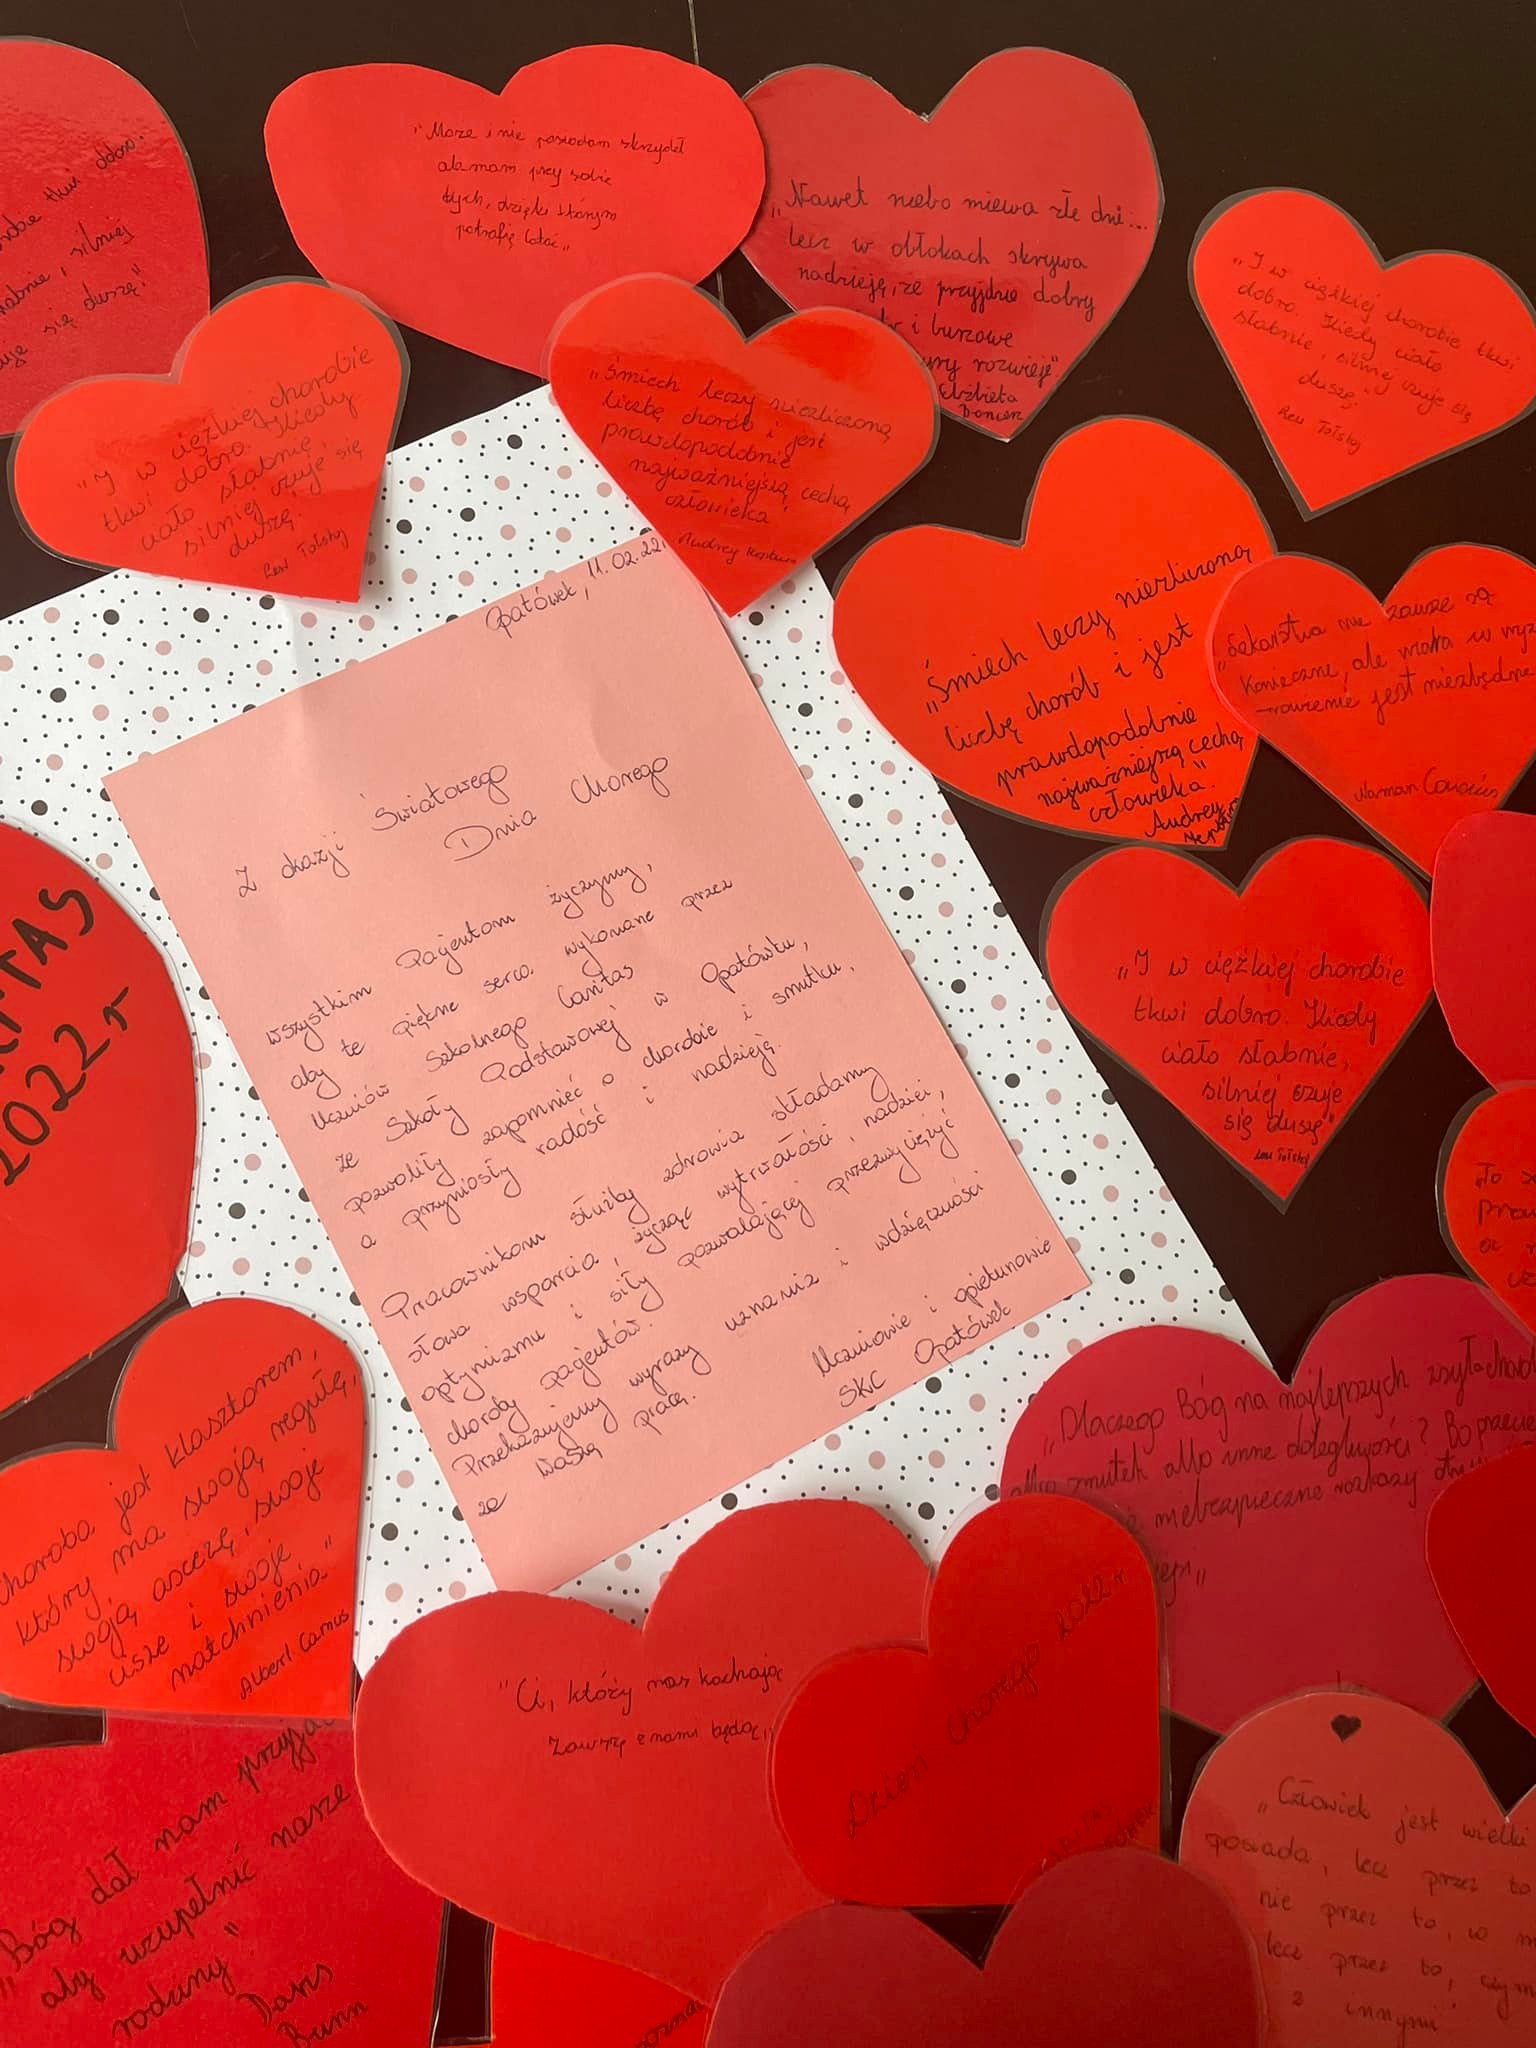 dobro.
się duszę."
"Może i nie posiadam skrzydeł
ale mam przy sobie
tych, dzięki którym
potrafię latać"
"Nawet niebo miewa złe dni...
lecz w obłokach skrywa
nadzieję, że przyjdzie dobry
i burzowe
rozwieje"
Elżbieta
Bancerz
"I w ciężkiej chorobie tkwi
dobro. Kiedy ciało
słabnie, silniej czuje się
duszę."
Lew Tołstoj
"I w ciężkiej chorobie
tkwi dobro. Kiedy
ciało słabnie,
silniej czuje się
duszę."
Lew Tołstoj
"Śmiech leczy niezliczoną
liczbę chorób i jest
prawdopodobnie
najważniejszą cechą
człowieka"
Audrey Hepburn
"Śmiech leczy niezliczoną
liczbę chorób i jest
prawdopodobnie
najważniejszą cechą
człowieka."
Audrey
Hepburn
"Lekarstwa nie zawsze są
konieczne, ale wiara w wyz
-rowienie jest niezbędna
Norman Cousins
"I w ciężkiej chorobie
tkwi dobro. Kiedy
ciało słabnie,
silniej czuje
się duszę"
Lew Tołstoj
Opatówek, 11.02.22r.
Z okazji Światowego
Dnia Chorego
wszystkim Pacjentom życzymy,
aby te piękne serca wykonane przez
Uczniów Szkolnego Caritas
ze Szkoły Podstawowej w Opatówku,
pozwoliły zapomnieć o chorobie i smutku,
a przyniosły radość i nadzieję.
Pracownikom służby zdrowia składamy
słowa wsparcia, życząc wytrwałości, nadziei,
optymizmu i siły pozwalającej przezwyciężyć
choroby pacjentów.
Przekazujemy wyrazy uznania i wdzięczności
za Waszą pracę.
Uczniowie i opiekunowie
SKC Opatówek
RITAS
2022 r
"To
Choroba jest klasztorem,
który ma swoją regułę,
swoją ascezę, swoje
cisze i swoje
natchnienia."
Albert Camus
"Dlaczego Bóg na najlepszych zsyła
albo smutek albo inne dolegliwości? Bo przecież
niebezpieczne rozkazy
"Bóg dał nam
aby uzupełnić nasze
rodziny"
Davis
Bunn
"Ci, którzy nas kochają
zawsze z nami będą"
Dzień Chorego 2022 r.
"Człowiek jest wielki
posiada, lecz przez to
nie przez to, co m
lecz przez to, czym
z innymi"